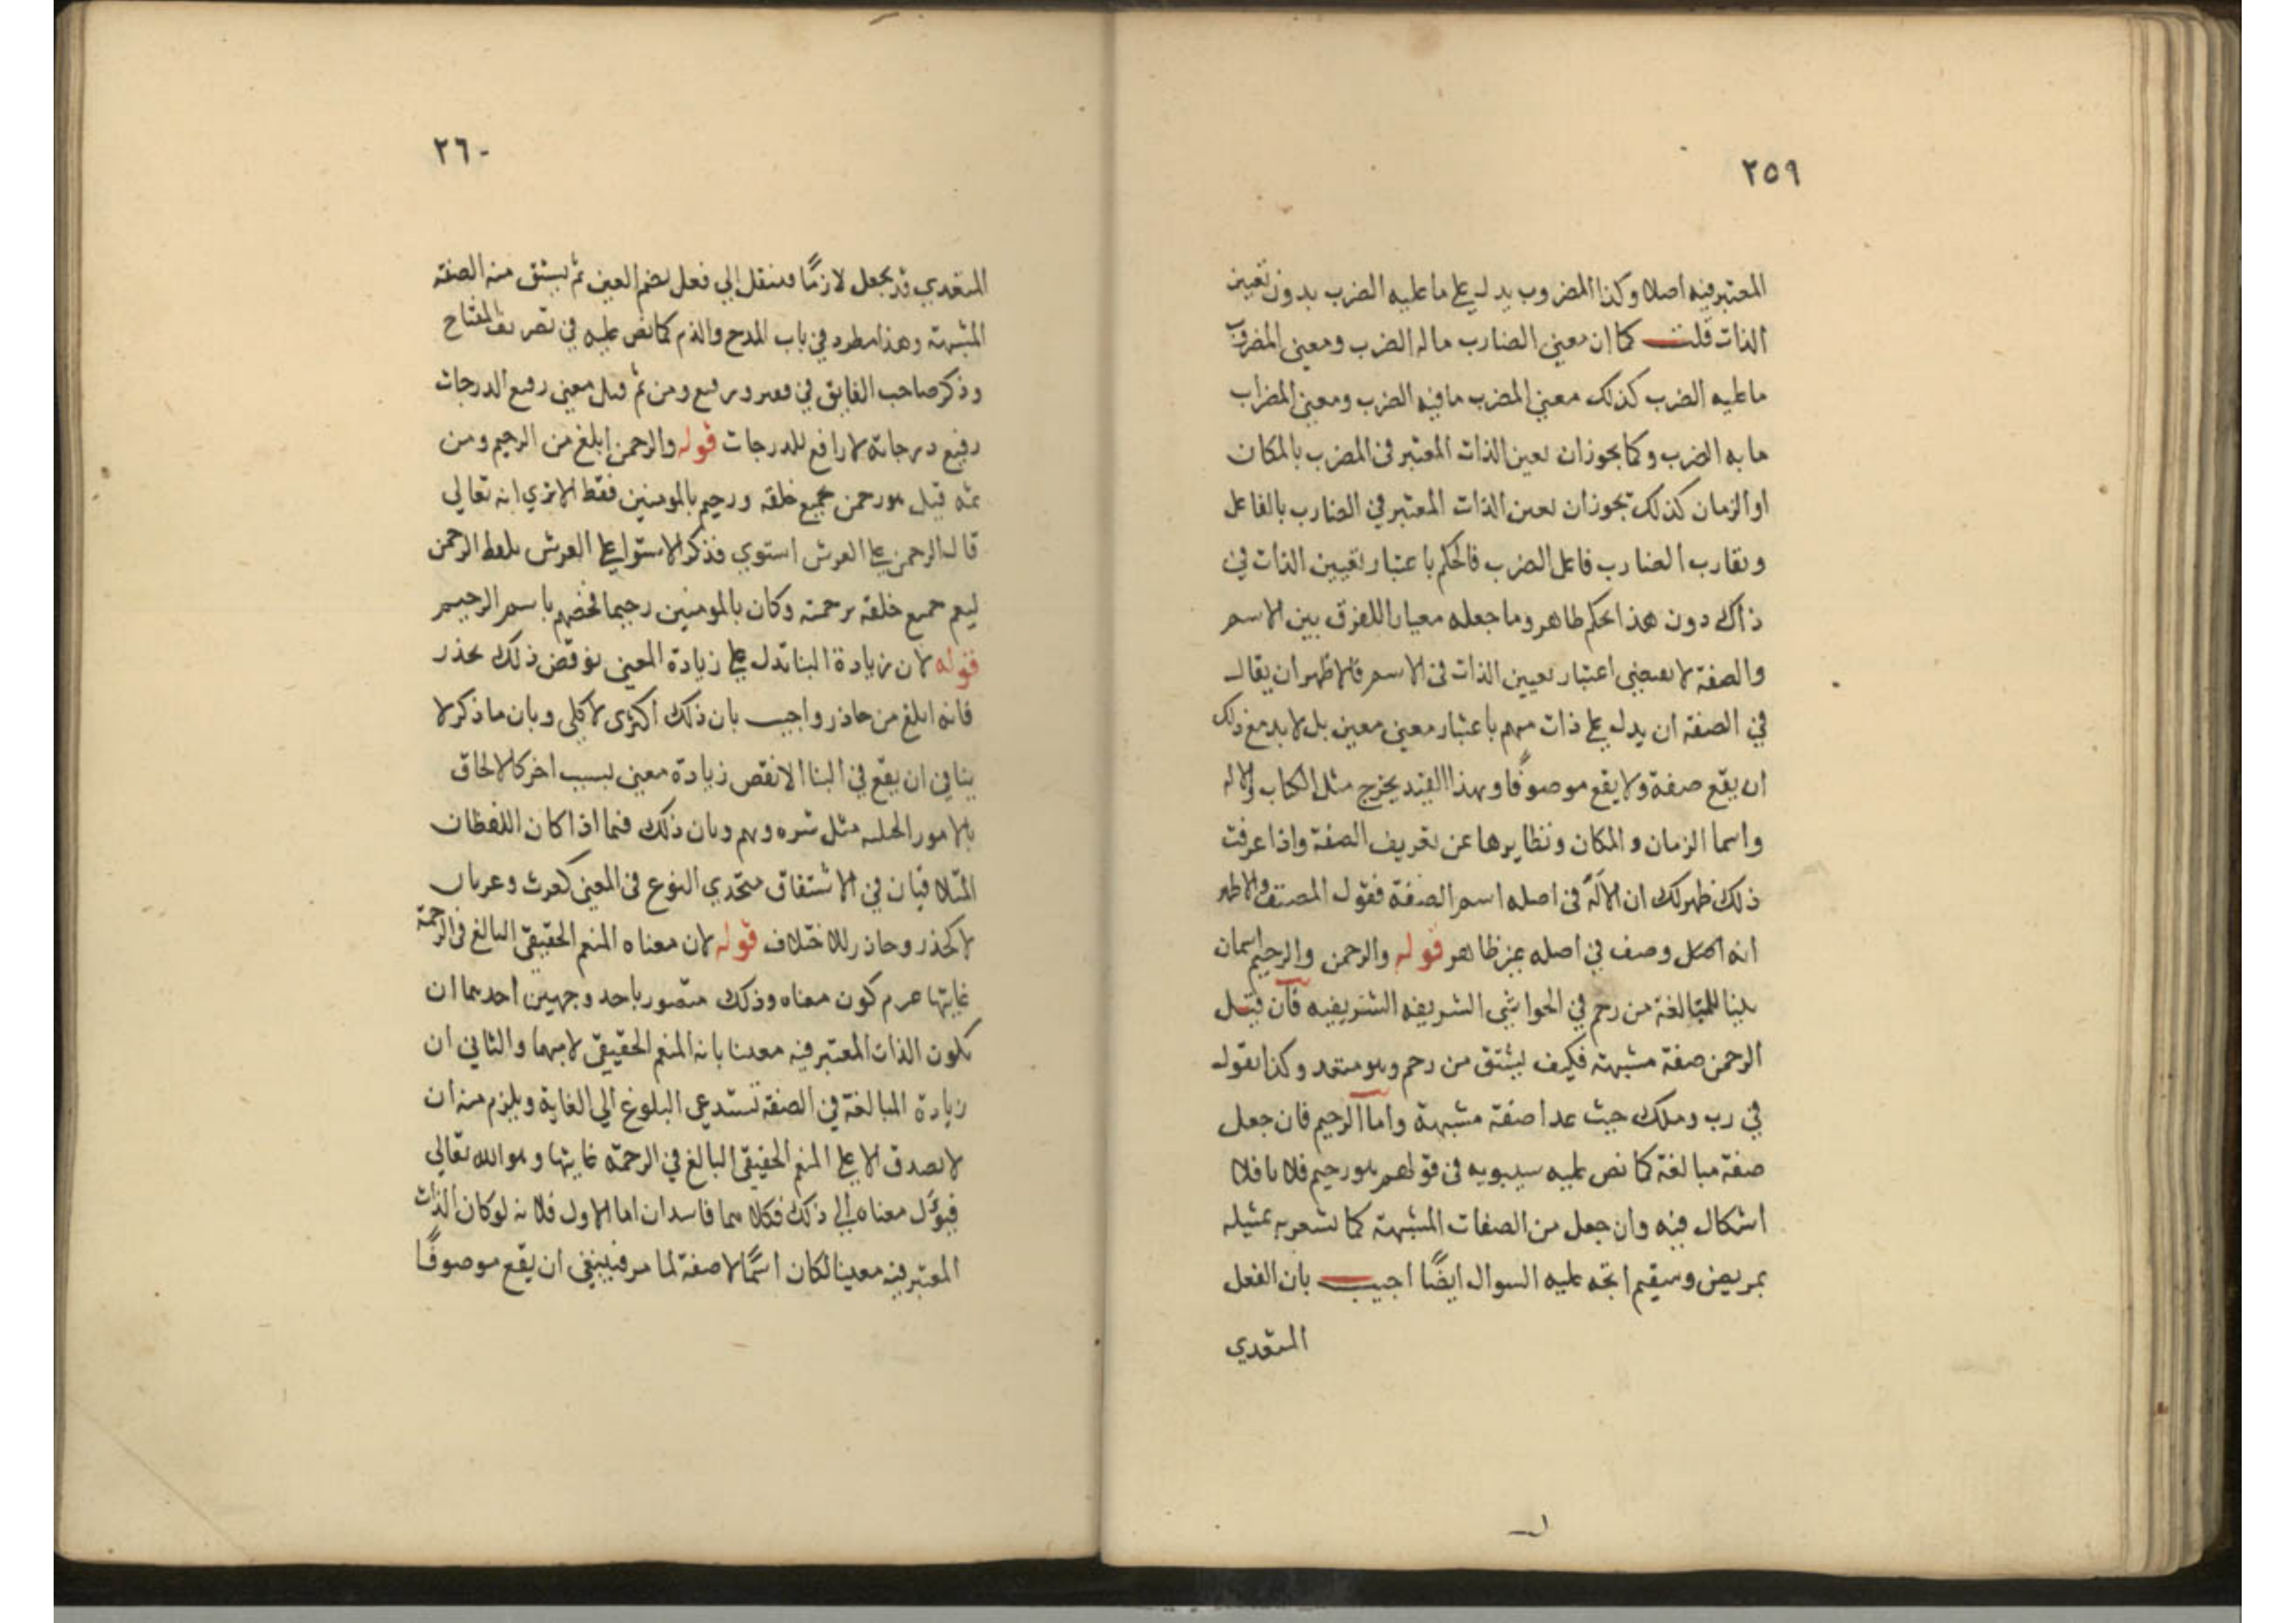 ٢٥٩
المعتبر فيه اصلا وكذا المضروب يدل على ما عليه الضرب بدون تعيين
الذات قلت كما ان معنى الضارب ما له الضرب ومعنى المضروب
ما عليه الضرب كذلك معنى المضرب ما فيه الضرب ومعنى المضراب
ما به الضرب وكما يجوز ان تعين الذات المعتبر في المضرب بالمكان
او الزمان كذلك يجوز ان تعين الذات المعتبر في الضارب بالفاعل
ويقارب الضارب فاعل الضرب فالحكم باعتبار تعيين الذات في
ذاك دون هذا تحكم ظاهر وما جعله معيارا للفرق بين الاسم
والصفة لا يقتضي اعتبار تعيين الذات في الاسم فالاظهر ان يقال
في الصفة ان يدل على ذات مبهم باعتبار معنى معين بل لا بد مع ذلك
ان يقع صفة ولا يقع موصوفًا وبهذا القيد يخرج مثل الكتاب والاله
واسما الزمان والمكان ونظايرها عن تعريف الصفة واذا عرفت
ذلك ظهر لك ان الالٓه في اصله اسم الصفة فقول المصنف والاظهر
انه اصل وصف في اصله غير ظاهر قوله والرحمن والرحيم اسمان
بنيا للمبالغة من رحم في الحواشي الشريفه الشريفيه فان قيل
الرحمن صفة مشبهة فكيف يشتق من رحم وهو متعد وكذا نقول
في رب وملك حيث عدا صفة مشبهة واما الرحيم فان جعل
صفة مبالغة كما نص عليه سيبويه في قولهم هو رحيم فلانا فلا
اشكال فيه وان جعل من الصفات المشبهة كما يشعر به تمثيله
بمريض وسقيم اتجه عليه السوال ايضًا اجيب بان الفعل
المتعدي
٢٦٠
المتعدي قد يجعل لازمًا فينقل الى فعل بضم العين ثم يشتق منه الصفة
المشبهة وهذا مطرد في باب المدح والذم كما نص عليه في تصريف المفتاح
وذكر صاحب الفايق في فقير ورفيع ومن ثم قيل معنى رفيع الدرجات
رفيع درجاته لا رافع للدرجات قوله والرحمن ابلغ من الرحيم ومن
ثمه قيل هو رحمن بجميع خلقه ورحيم بالمومنين فقط الا ترى انه تعالى
قال الرحمن على العرش استوى فذكر الاستوا على العرش بلفظ الرحمن
ليعم جميع خلقه برحمته وكان بالمومنين رحيما فخصهم باسم الرحيم
قوله لان زيادة البنا تدل على زيادة المعنى نوقض ذلك بحذر
فانه ابلغ من حاذر واجيب بان ذلك اكثرى لا كلي وبان ما ذكر لا
ينافي ان يقع في البنا الانقص زيادة معنى بسبب اخر كالالحاق
بالامور الجبلية مثل شره ونهم وبان ذلك فيما اذا كان اللفظان
المتلاقيان في الاشتقاق متحدي النوع في المعنى كغرث وغرثان
لا كحذر وحاذر للاختلاف قوله لان معناه المنعم الحقيقي البالغ في الرحمة
غايتها عدم كون معناه وذلك متصور باحد وجهين احدهما ان
يكون الذات المعتبر فيه معينا بانه المنعم الحقيقي لا مبهما والثاني ان
زيادة المبالغة في الصفة تستدعي البلوغ الى الغاية ويلزم منه ان
لا يصدق الا على المنعم الحقيقي البالغ في الرحمة غايتها وهو الله تعالى
فيؤل معناه الى ذلك فكلاهما فاسدان اما الاول فلانه لو كان الذات
المعتبر فيه معينا لكان اسمًا لا صفة لما مر فينبغي ان يقع موصوفًا